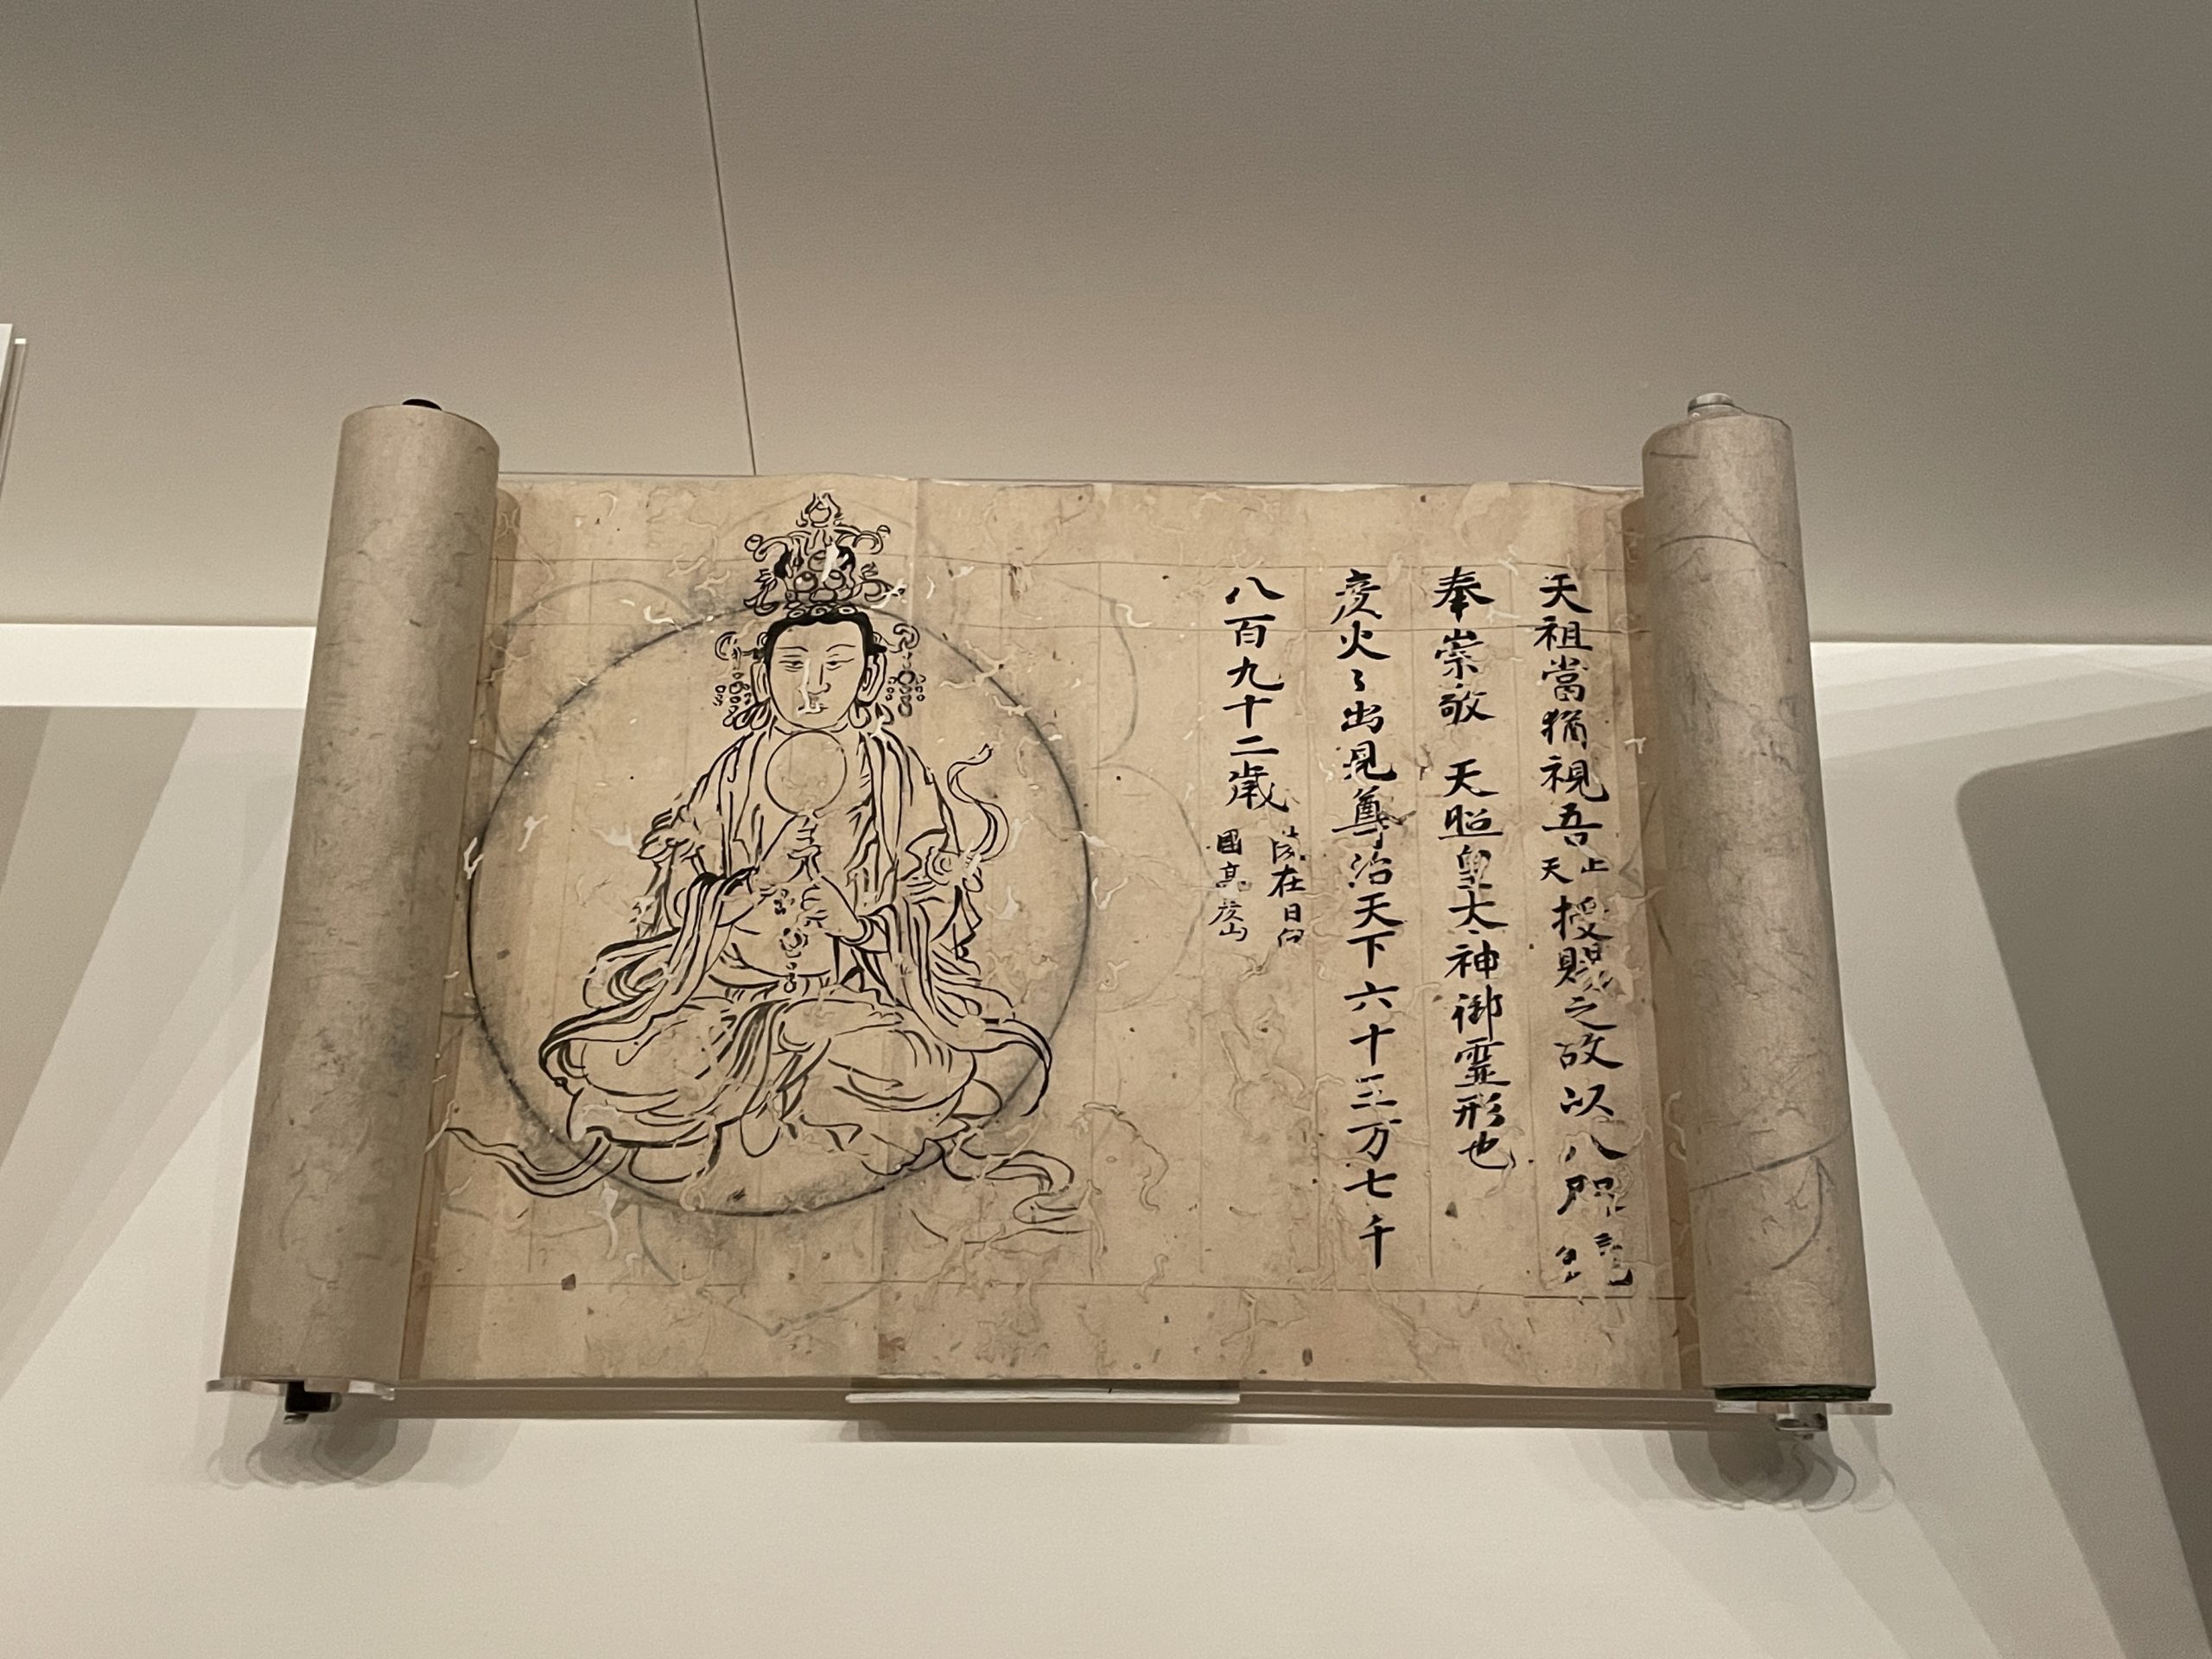 天祖當猶視吾止天授賜之故以八咫鏡
奉崇敬 天照皇太神御霊形也
彦火々出見尊治天下六十三万七千
八百九十二歳
陵在日向
國高屋山